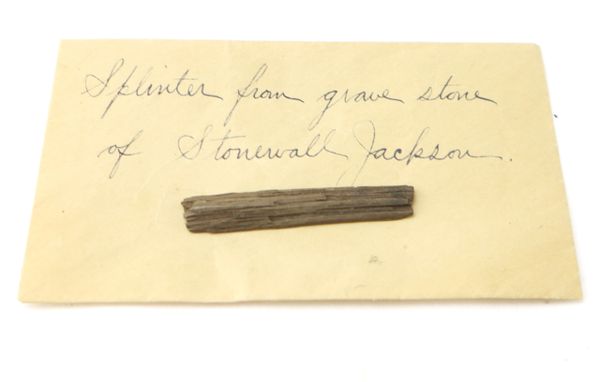 Splinter from grave stone
of Stonewall Jackson.